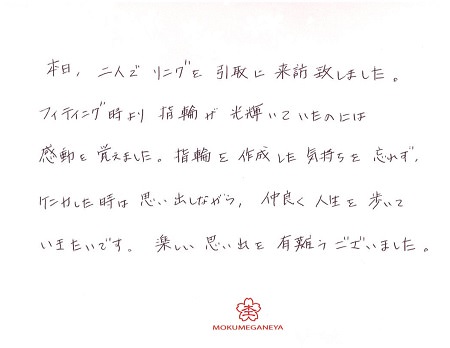 本日、二人でリングを引取に来訪致しました。
フィティング時より指輪が光輝いていたのには
感動を覚えました。指輪を作成した気持ちを忘れず、
ケンカした時は思い出しながら、仲良く人生を歩いて
いきたいです。楽しい思い出を有難うございました。
MOKUMEGANEYA